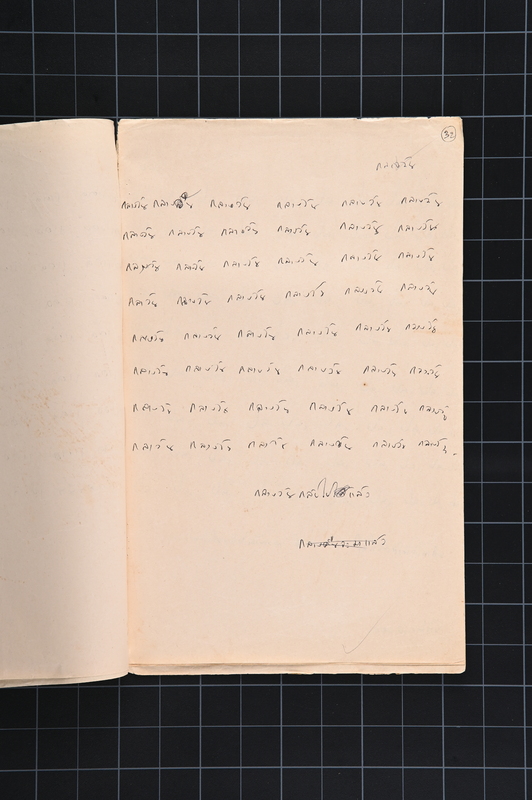 32
กลางวัน
กลางวัน กลางวัน กลางวัน กลางวัน กลางวัน กลางวัน
กลางวัน กลางวัน กลางวัน กลางวัน กลางวัน กลางวัน
กลางวัน กลางวัน กลางวัน กลางวัน กลางวัน กลางวัน
กลางวัน กลางวัน กลางวัน กลางวัน กลางวัน กลางวัน
กลางวัน กลางวัน กลางวัน กลางวัน กลางวัน กลางวัน
กลางวัน กลางวัน กลางวัน กลางวัน กลางวัน กลางวัน
กลางวัน กลางวัน กลางวัน กลางวัน กลางวัน กลางวัน
กลางวัน กลางวัน กลางวัน กลางวัน กลางวัน กลางวัน
กลางวัน กลับไป แล้ว
แล้ว